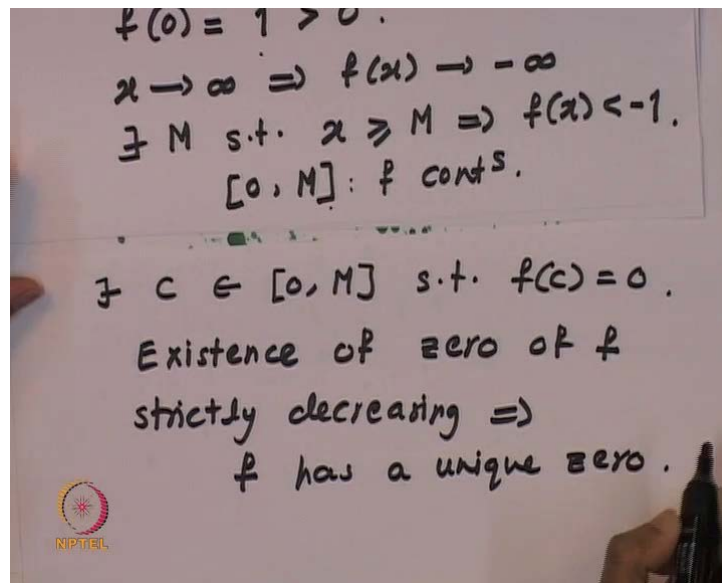 f(0) = 1 > 0 .
x → ∞ ⇒ f(x) → - ∞
∃ M s.t. x ⩾ M ⇒ f(x) < -1.
[0, M] : f contˢ.
∃ c ∈ [0, M] s.t. f(c) = 0 .
Existence of zero of f
strictly decreasing ⇒
f has a unique zero .
NPTEL